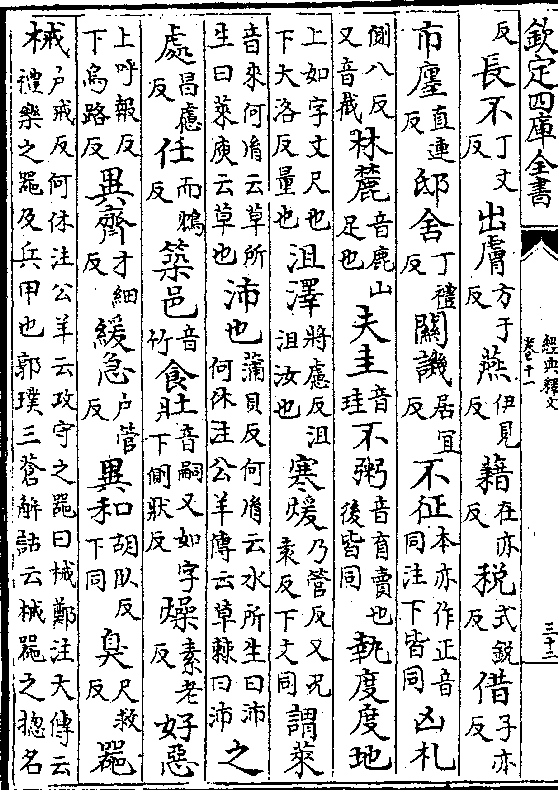 欽定四庫全書
經典釋文
卷十一
三十二
反長不丁丈反出膚方于反燕伊見反藉在亦反稅式銳反借子亦反
市廛直連反邸舍丁禮反關譏居宜反不征本亦作正音同注下皆同凶札
側八反又音截林麓音鹿山足也夫圭音珪不粥音育賣也後皆同執度度地
上如字丈尺也下大洛反量也沮澤將慮反沮沮汝也寒煖乃管反又況袁反下文同謂萊
音來何胤云草所生曰萊庾云草也沛也蒲貝反何胤云水所生曰沛何休注公羊傳云草棘曰沛之
處昌慮反任而鴆反築邑音竹食壯音嗣又如字下側狀反燥素老反好惡
上呼報反下烏路反異齊才細反緩急戶管反異和胡臥反下同臭尺救反器
械戶戒反何休注公羊云攻守之器曰械鄭注大傳云禮樂之器及兵甲也郭璞三蒼解詁云械器之摠名